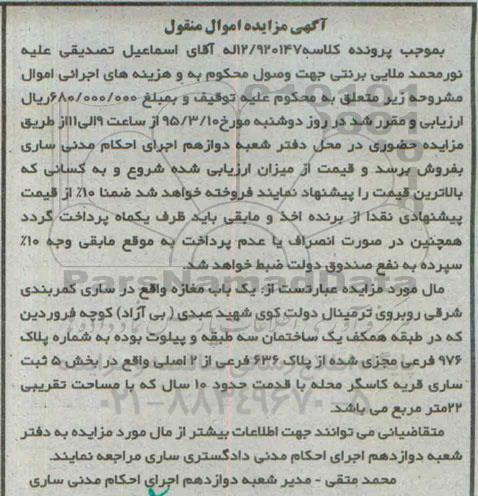 آگهی مزایده اموال منقول
بموجب پرونده کلاسه ۱۲/۹۲۰۱۴۷له آقای اسماعیل تصدیقی علیه
نورمحمد ملایی برنتی جهت وصول محکوم به و هزینه های اجرائی اموال
مشروحه زیر متعلق به محکوم علیه توقیف و بمبلغ ۶۸۰/۰۰۰/۰۰۰ریال
ارزیابی و مقرر شد در روز دوشنبه مورخ۹۵/۳/۱۰ از ساعت ۹الی۱۱از طریق
مزایده حضوری در محل دفتر شعبه دوازدهم اجرای احکام مدنی ساری
بفروش برسد و قیمت از میزان ارزیابی شده شروع و به کسانی که
بالاترین قیمت را پیشنهاد نمایند فروخته خواهد شد ضمنا ۱۰٪ از قیمت
پیشنهادی نقدا از برنده اخذ و مابقی باید ظرف یکماه پرداخت گردد
همچنین در صورت انصراف یا عدم پرداخت به موقع مابقی وجه ۱۰٪
سپرده به نفع صندوق دولت ضبط خواهد شد
مال مورد مزایده عبارتست از: یک باب مغازه واقع در ساری کمربندی
شرقی روبروی ترمینال دولت کوی شهید عبدی ( بی آزاد) کوچه فروردین
که در طبقه همکف یک ساختمان سه طبقه و پیلوت بوده به شماره پلاک
۹۷۶ فرعی مجزی شده از پلاک ۶۳۶ فرعی از ۲ اصلی واقع در بخش ۵ ثبت
ساری قریه کاسگر محله با قدمت حدود ۱۰ سال که با مساحت تقریبی
۲۲متر مربع می باشد.
متقاضیانی می توانند جهت اطلاعات بیشتر از مال مورد مزایده به دفتر
شعبه دوازدهم اجرای احکام مدنی دادگستری ساری مراجعه نمایند.
محمد متقی - مدیر شعبه دوازدهم اجرای احکام مدنی ساری
ParsNamadData
۰۲۱-۸۸۳۴۹۶۷۰-۵